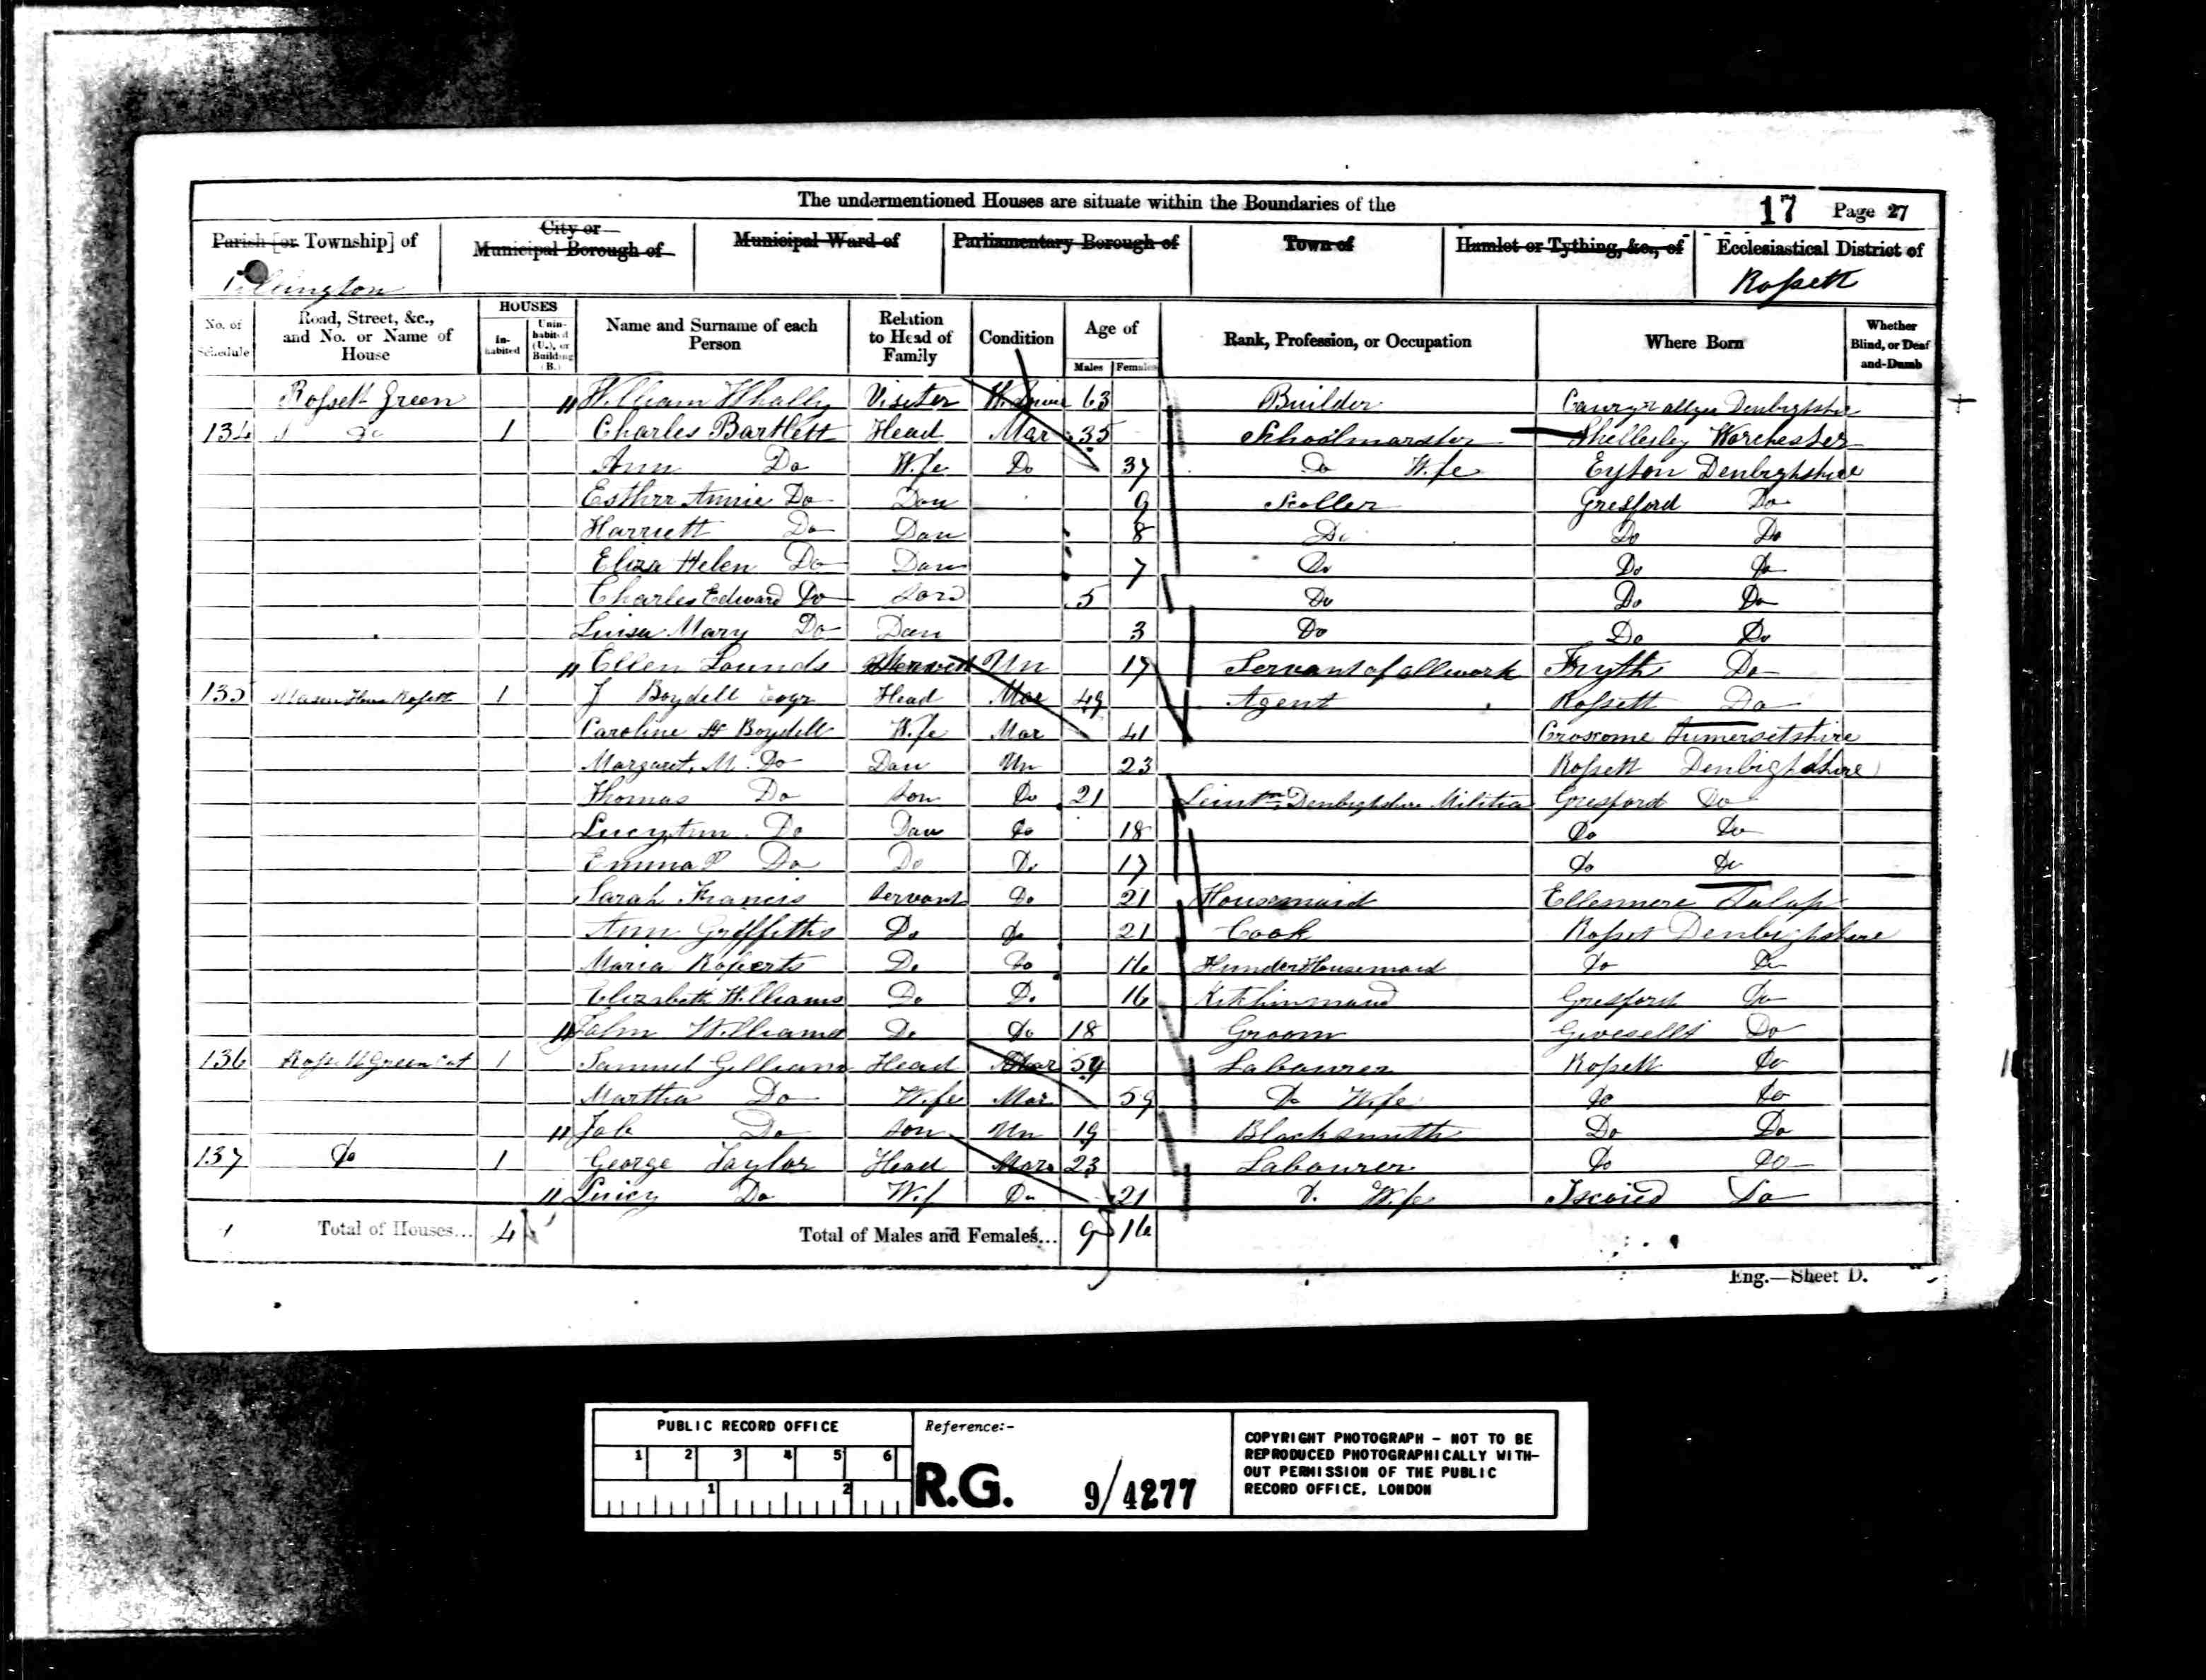 The undermentioned Houses are situate within the Boundaries of the
17 Page 27
Parish [or Township] of
City or Municipal Borough of
Municipal Ward of
Parliamentary Borough of
Town of
Hamlet or Tything, &c., of
Ecclesiastical District of
Rossett
No. of Schedule
Road, Street, &c., and No. or Name of House
HOUSES
In-habited
Unin-habited (U.), or Building (B.)
Name and Surname of each Person
Relation to Head of Family
Condition
Age of
Males Females
Rank, Profession, or Occupation
Where Born
Whether Blind, or Deaf-and-Dumb
Rossett Green William Whally Visiter 63 Builder Denbighshire
134 Do 1 Charles Bartlett Head Mar 35 Schoolmarster Shellesley Worchester
Ann Do Wife Do 37 Do Wife Eyton Denbighshire
Esther Annie Do Dau 9 Scoller Gresford Do
Harriett Do Dau 8 Do Do Do
Eliza Helen Do Dau 7 Do Do Do
Charles Edward Do Son 5 Do Do Do
Luisa Mary Do Dau 3 Do Do Do
Ellen Lounds Un 17 Servant of allwork Do
135 Rossett 1 J Boydell Head Mar 49 Agent Rossett Do
Caroline Boydell Wife Mar 41 Croscome Sumersetshire
Margaret M. Do Dau Un 23 Rossett Denbighshire
Thomas Do Son Do 21 Denbighshire Militia Gresford Do
Lucy Ann Do Dau Do 18 Do Do
Emma P Do Do Do 17 Do Do
Sarah Francis Servant Do 21 Housemaid Ellesmere Salop
Ann Griffiths Do Do 21 Cook Rosset Denbighshire
Maria Roberts Do Do 16 Hunder Housemaid Do Do
Elizabeth Williams Do Do 16 Gresford Do
John Williams Do Do 18 Groom Do
136 Rossett Green Cot 1 Samuel Gilliam Head Mar 59 Labourer Rossett Do
Martha Do Wife Mar 59 Do Wife Do Do
Job Do Son Un 19 Blacksmith Do Do
137 Do 1 George Taylor Head Mar 23 Labourer Do Do
Do Wif Do 21 D. Wife Iscoied Do
Total of Houses... 4
Total of Males and Females... 9 16
Eng.—Sheet D.
PUBLIC RECORD OFFICE
1 2 3 4 5 6
1 2
Reference:-
R.G. 9/4277
COPYRIGHT PHOTOGRAPH - NOT TO BE
REPRODUCED PHOTOGRAPHICALLY WITH-
OUT PERMISSION OF THE PUBLIC
RECORD OFFICE, LONDON